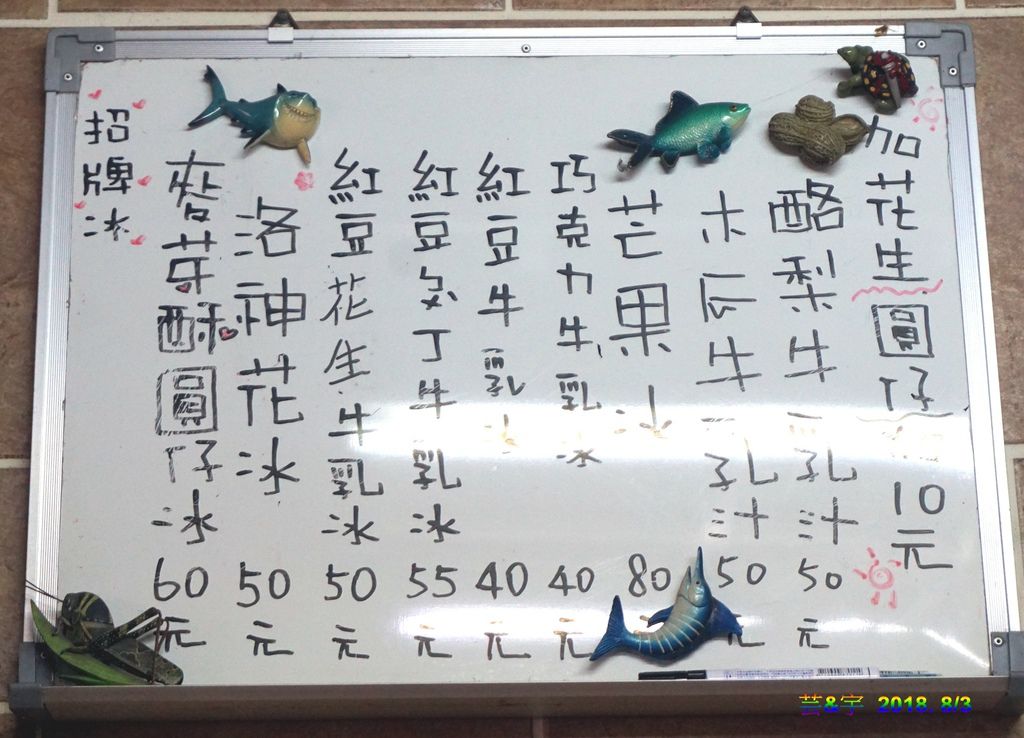 招牌冰
麥芽酥圓仔冰 60元
洛神花冰 50元
紅豆花生牛乳冰 50元
紅豆布丁牛乳冰 55元
紅豆牛乳冰 40元
巧克力牛乳冰 40元
芒果冰 80
木瓜牛乳汁 50元
酪梨牛乳汁 50元
加花生圓仔 10元
芸&宇 2018. 8/3